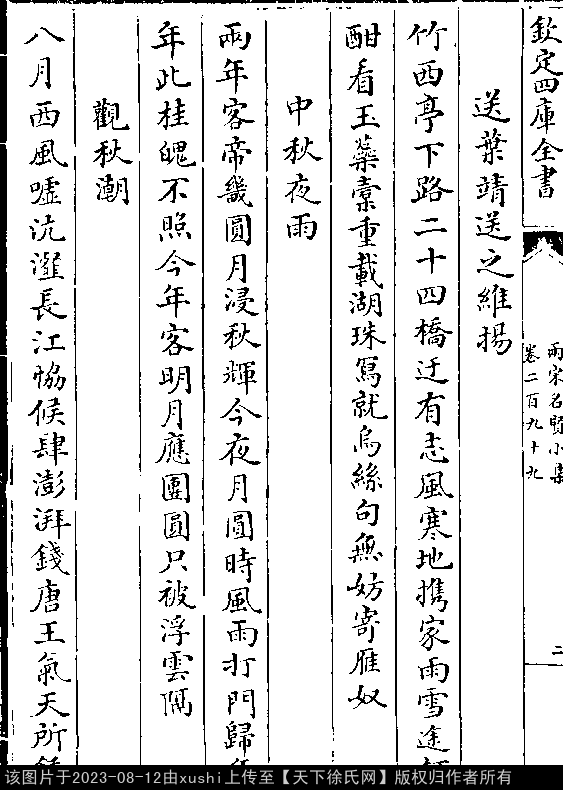 欽定四庫全書
兩宋名賢小集
卷二百九十九
二
送葉靖逸之維揚
竹西亭下路二十四橋迂有志風寒地携家雨雪途
酣看玉蘂槖重載湖珠寫就烏絲句無妨寄雁奴
中秋夜雨
兩年客帝畿圓月浸秋輝今夜月圓時風雨打門歸
年此桂魄不照今年客明月應團圓只被浮雲隔
觀秋潮
八月西風噓沆瀣長江恊候肆澎湃錢唐王氣天所
该图片于2023-08-12由xushi上传至【天下徐氏网】版权归作者所有